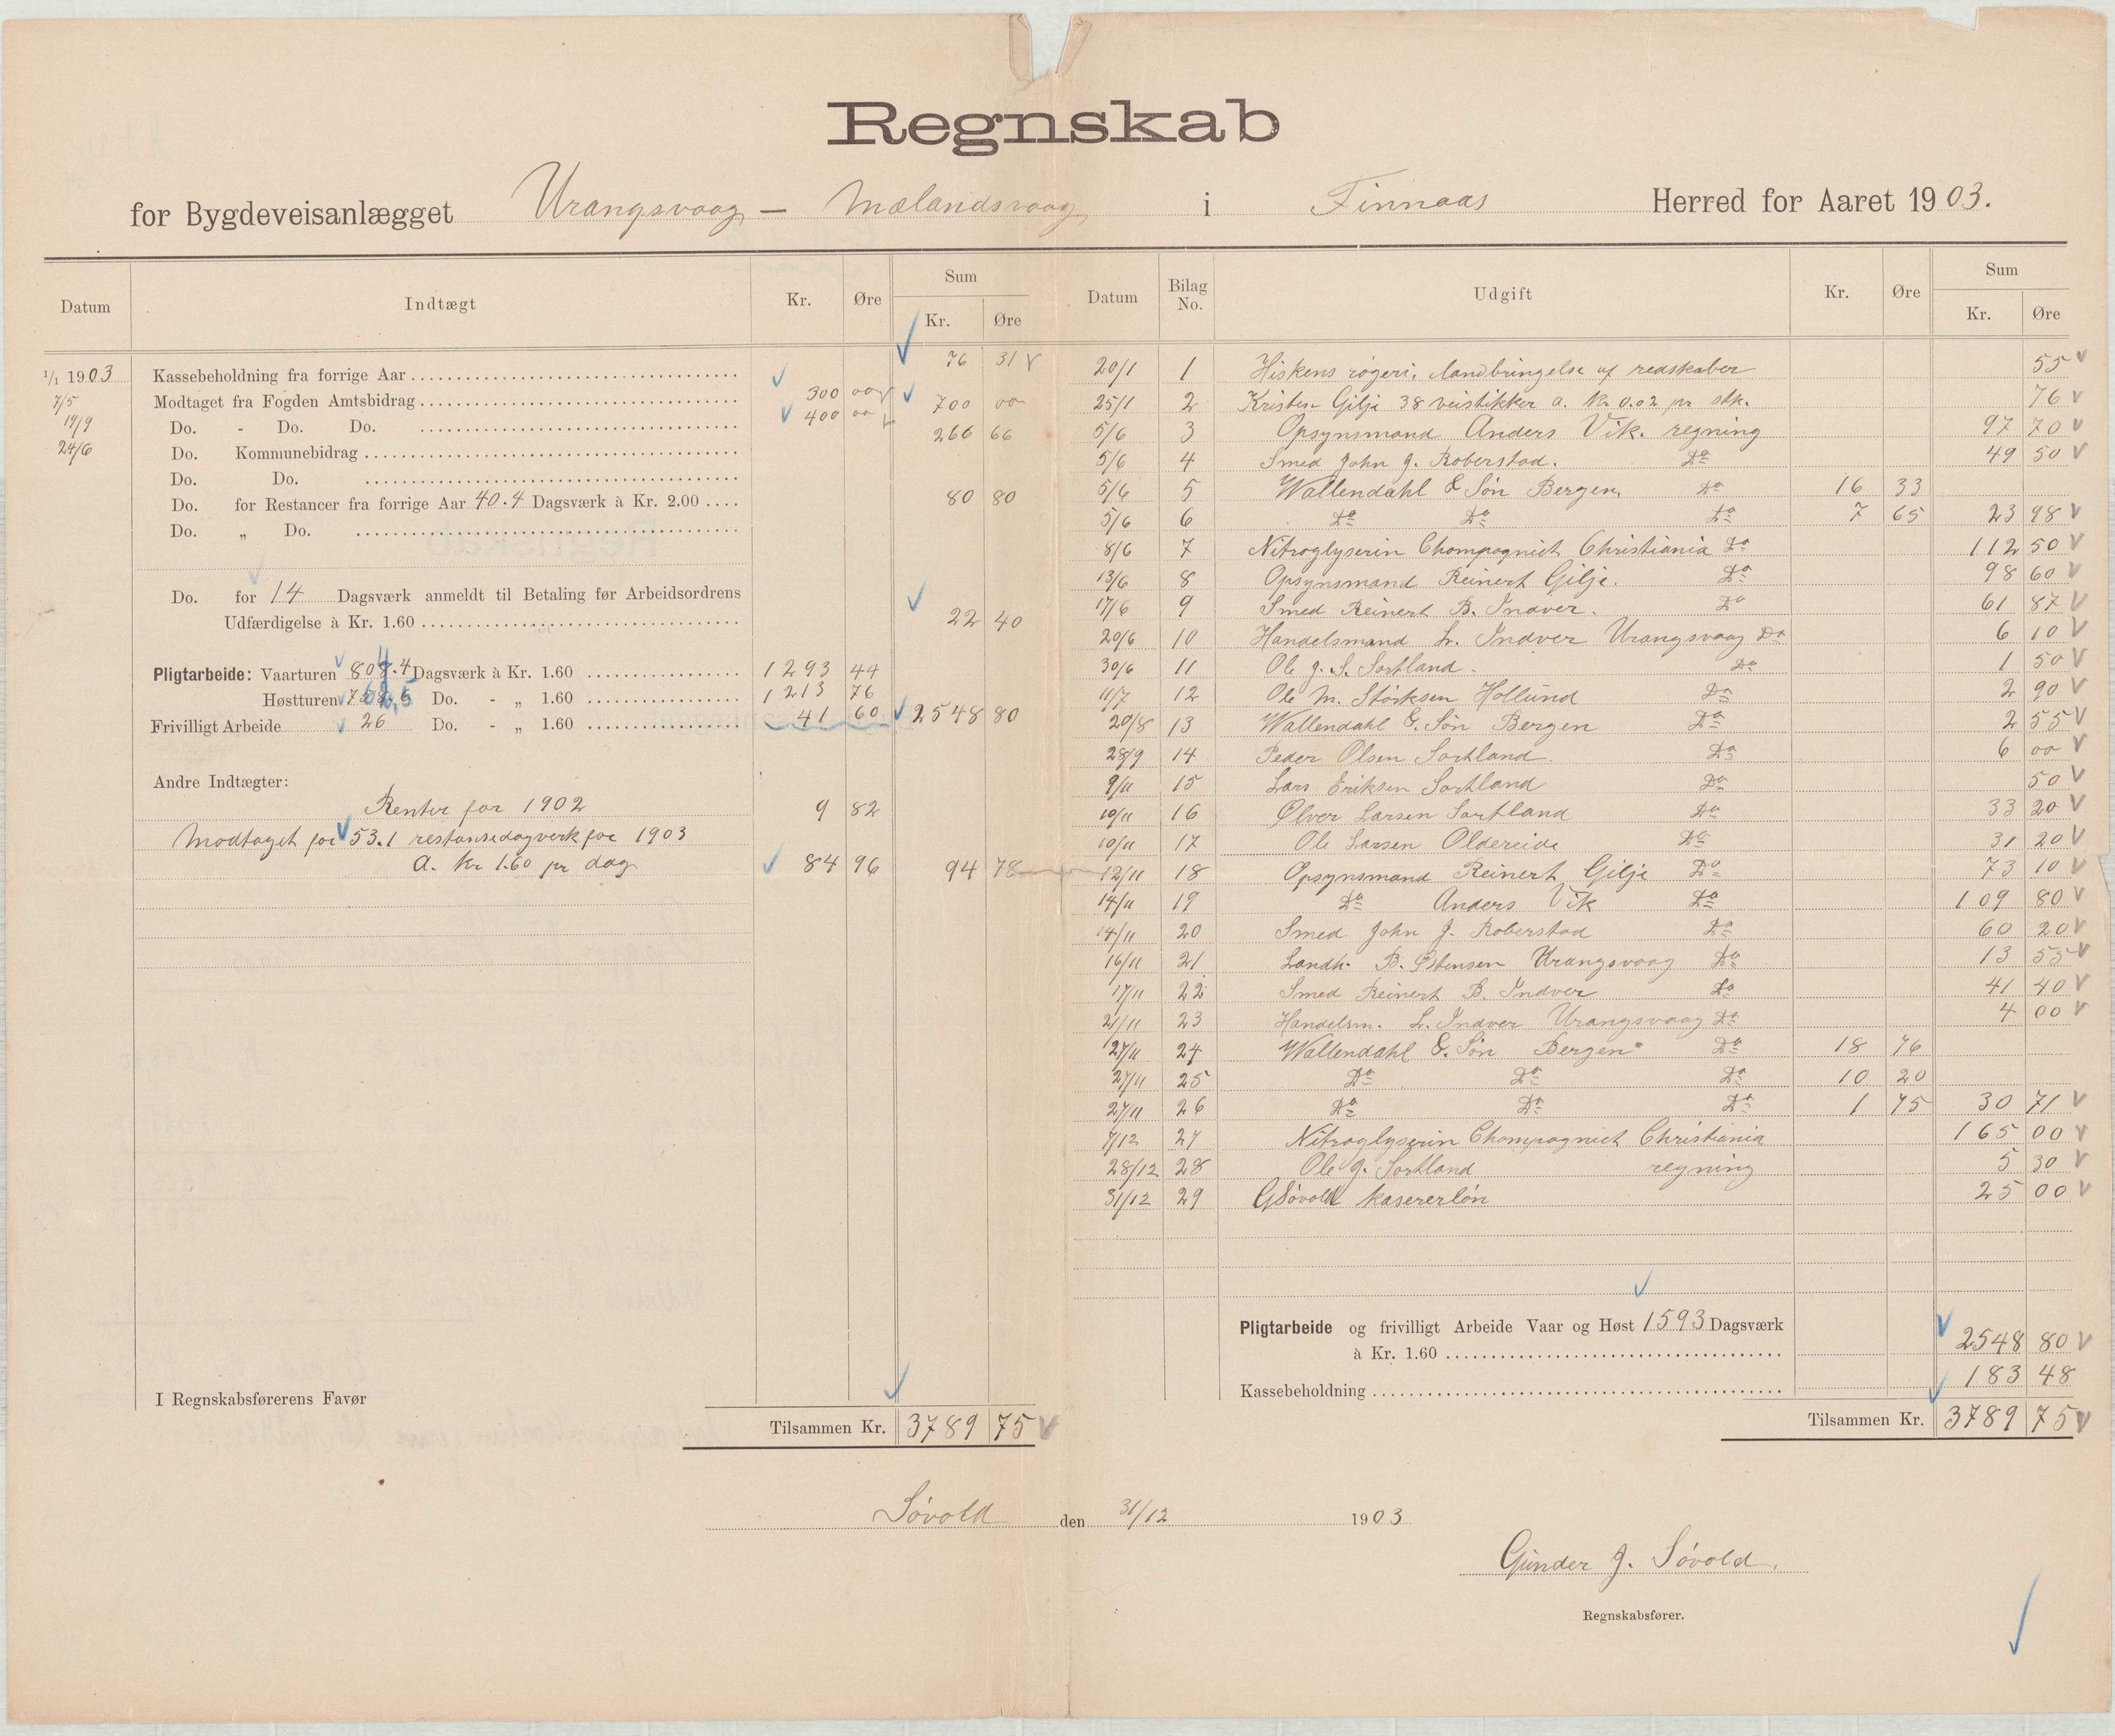 Regnskab
for Bygdeveisanlægget Urangsvaag — Mælandsvaag i Finnaas Herred for Aaret 1903.
Datum Indtægt Kr. Øre Sum Kr. Øre
1/1 1903 Kassebeholdning fra forrige Aar 76 31
7/5 Modtaget fra Fogden Amtsbidrag 300 00
19/9 Do. - Do. Do. 400 00 700 00
24/6 Do. Kommunebidrag 266 66
Do. Do.
Do. for Restancer fra forrige Aar 40.4 Dagsværk à Kr. 2.00 80 80
Do. „ Do.
Do. for 14 Dagsværk anmeldt til Betaling før Arbeidsordrens
Udfærdigelse à Kr. 1.60 22 40
Pligtarbeide: Vaarturen 808.4 Dagsværk à Kr. 1.60 1293 44
Høstturen 758,6 Do. - „ 1.60 1213 76
Frivilligt Arbeide 26 Do. - „ 1.60 41 60 2548 80
Andre Indtægter:
Renter for 1902 9 82
Modtaget for 53.1 restansedagverk for 1903
a. Kr 1.60 pr dag 84 96 94 78
I Regnskabsførerens Favør
Tilsammen Kr. 3789 75
Datum Bilag No. Udgift Kr. Øre Sum Kr. Øre
20/1 1 Hiskens røgeri, ilandbringelse af redskaber 55
25/1 2 Kristen Gilje 38 veistikker a. Kr. 0.02 pr stk. 76
5/6 3 Opsynsmand Anders Vik. regning 97 70
5/6 4 Smed John J. Roberstad. Do 49 50
5/6 5 Wallendahl & Søn Bergen. Do 16 33
5/6 6 Do Do Do 7 65 23 98
8/6 7 Nitroglyserin Chompagniet Christiania Do 112 50
13/6 8 Opsynsmand Reinert Gilje. Do 98 60
17/6 9 Smed Reinert B. Indver. Do 61 87
20/6 10 Handelsmand L. Indver Urangsvaag Do 6 10
30/6 11 Ole J. S. Sortland. Do 1 50
11/7 12 Ole M. Størksen Hollund Do 2 90
20/8 13 Wallendahl & Søn Bergen Do 2 55
28/9 14 Peder Olsen Sortland. Do 6 00
9/11 15 Lars Eriksen Sortland Do 50
10/11 16 Ølver Larsen Sortland Do 33 20
10/11 17 Ole Larsen Oldereide Do 31 20
12/11 18 Opsynsmand Reinert Gilje Do 73 10
14/11 19 Do Anders Vik Do 109 80
14/11 20 Smed John J. Roberstad Do 60 20
16/11 21 Landh. B. Stensen Urangsvaag Do 13 55
17/11 22 Smed Reinert B. Indver Do 41 40
21/11 23 Handelsm. L. Indver Urangsvaag Do 4 00
27/11 24 Wallendahl & Søn Bergen Do 18 76
27/11 25 Do Do Do 10 20
27/11 26 Do Do Do 1 75 30 71
7/12 27 Nitroglyserin Chompagniet Christiania 165 00
28/12 28 Ole J. Sortland regning 5 30
31/12 29 G Søvold kasererløn 25 00
Pligtarbeide og frivilligt Arbeide Vaar og Høst 1593 Dagsværk
à Kr. 1.60 2548 80
Kassebeholdning 183 48
Tilsammen Kr. 3789 75
Søvold den 31/12 1903
Gunder J. Søvold.
Regnskabsfører.